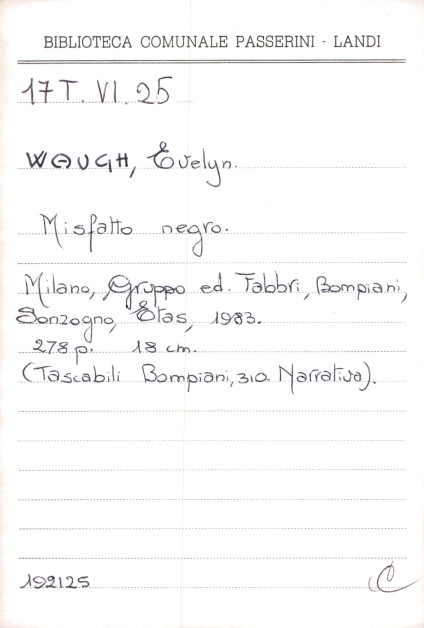 BIBLIOTECA COMUNALE PASSERINI - LANDI
17 T. VI. 25
WAUGH, Evelyn.
Misfatto negro.
Milano, Gruppo ed. Fabbri, Bompiani,
Sonzogno, Etas, 1983.
278 p. 18 cm.
(Tascabili Bompiani, 310. Narrativa).
192125